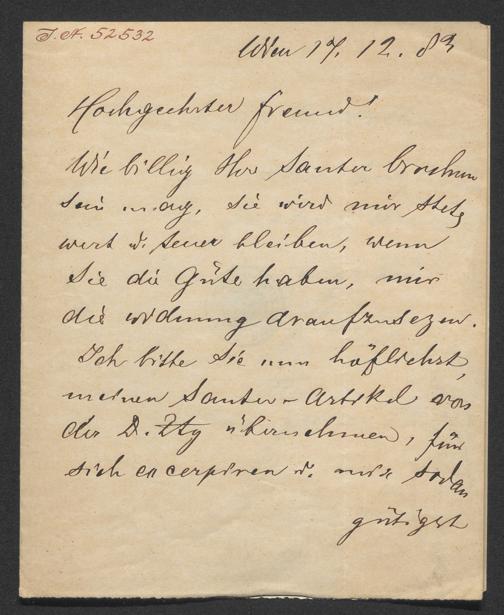 I.N. 52532
Wien 17. 12. 83
Hochgeehrter Freund!
Wie billig Ihr Sauter brochum
sein mag, sie wird mir stets
wert u. teuer bleiben, wenn
Sie die Güte haben, mir
die widmung draufzusezen.
Ich bitte Sie nun höflichst,
meinen Sauter-Artikel von
der D. Ztg übernehmen, für
sich excerpiren u. mir sodan
gütigst